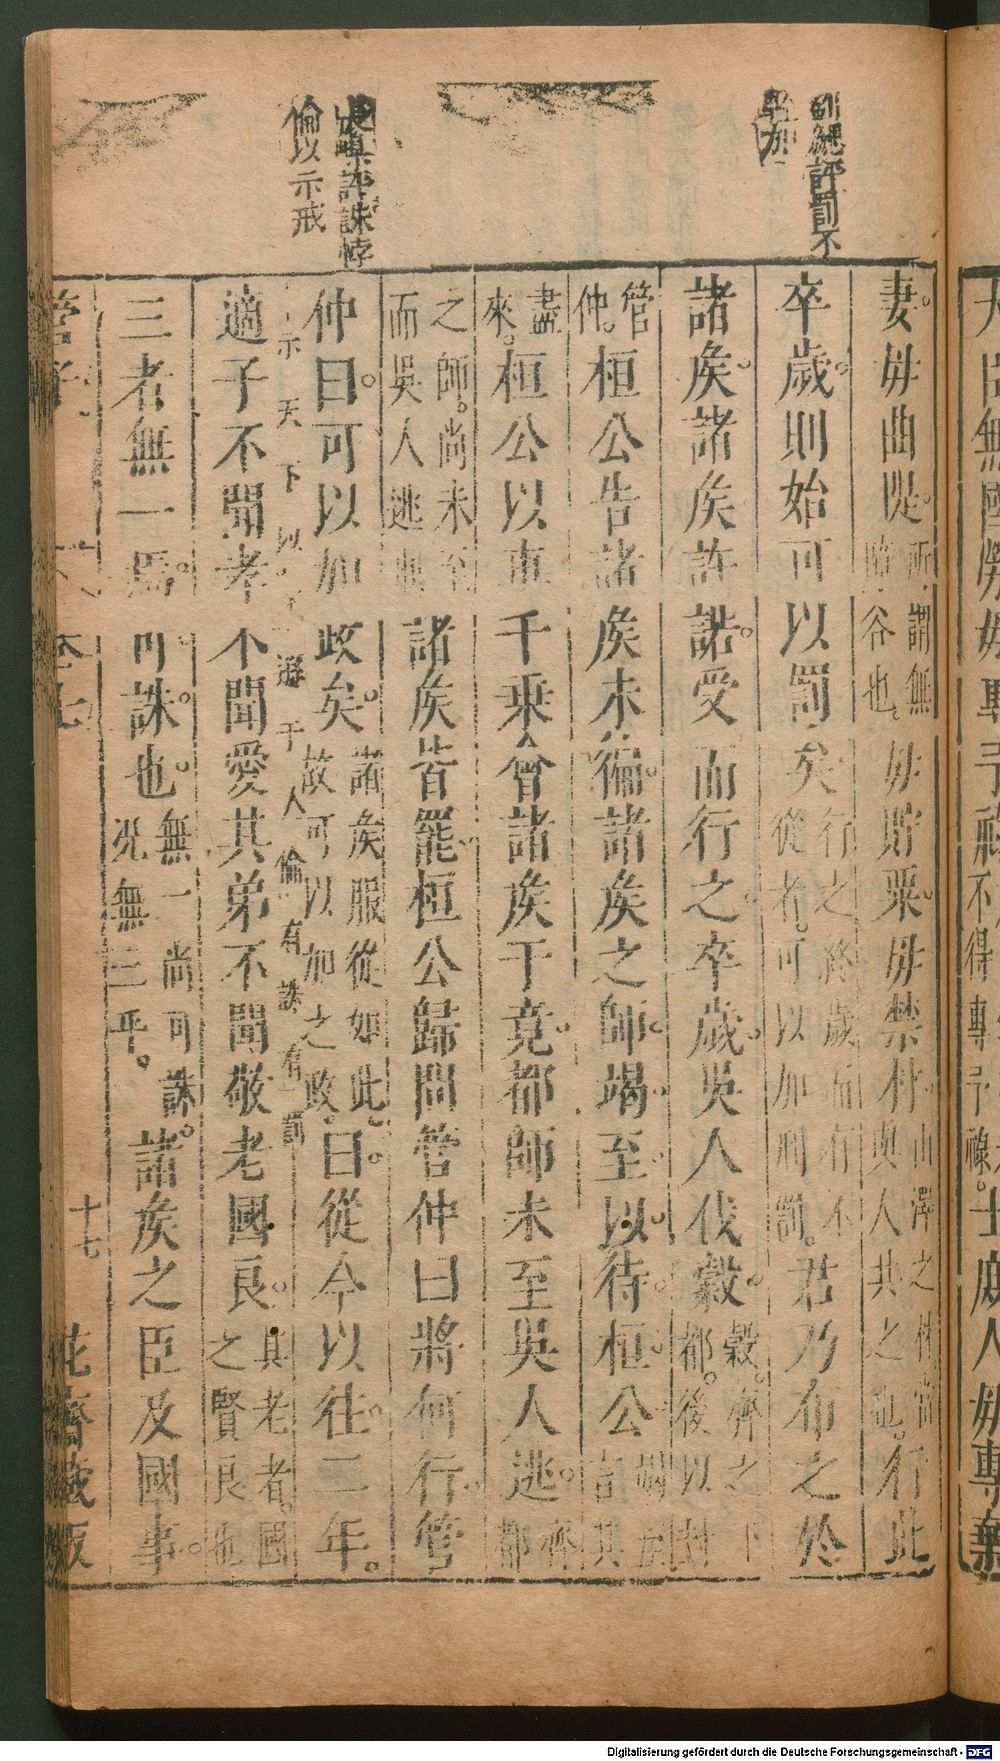 劉績評罰不
輕加
評誅悖
倫以示戒
妻毋曲隄所謂無障谷也毋貯粟毋禁材山澤之材當與人共之也行此
卒歲則始可以罰矣行之終歲而有不從者可以加刑罰君乃布之於
諸矦諸矦許諾受而行之卒歲吳人伐穀穀齊之下都後以封
管仲桓公告諸矦未徧諸矦之師竭至以待桓公竭言其
盡來桓公以車千乘會諸矦于竟都師未至吳人逃齊都
之師尚未至而吳人逃也諸矦皆罷桓公歸問管仲曰將何行管
仲曰可以加政矣諸矦服從如此故可以加之政曰從今以往二年
示天下以 遊于人倫有誅有罰
適子不聞孝不聞愛其弟不聞敬老國良其老者國之賢良也
三者無一焉可誅也無一尚可誅況無三乎諸矦之臣及國事
管子 卷七 十七 花齋藏板
不得專予祿士庶人毋專棄
Digitalisierung gefördert durch die Deutsche Forschungsgemeinschaft - DFG